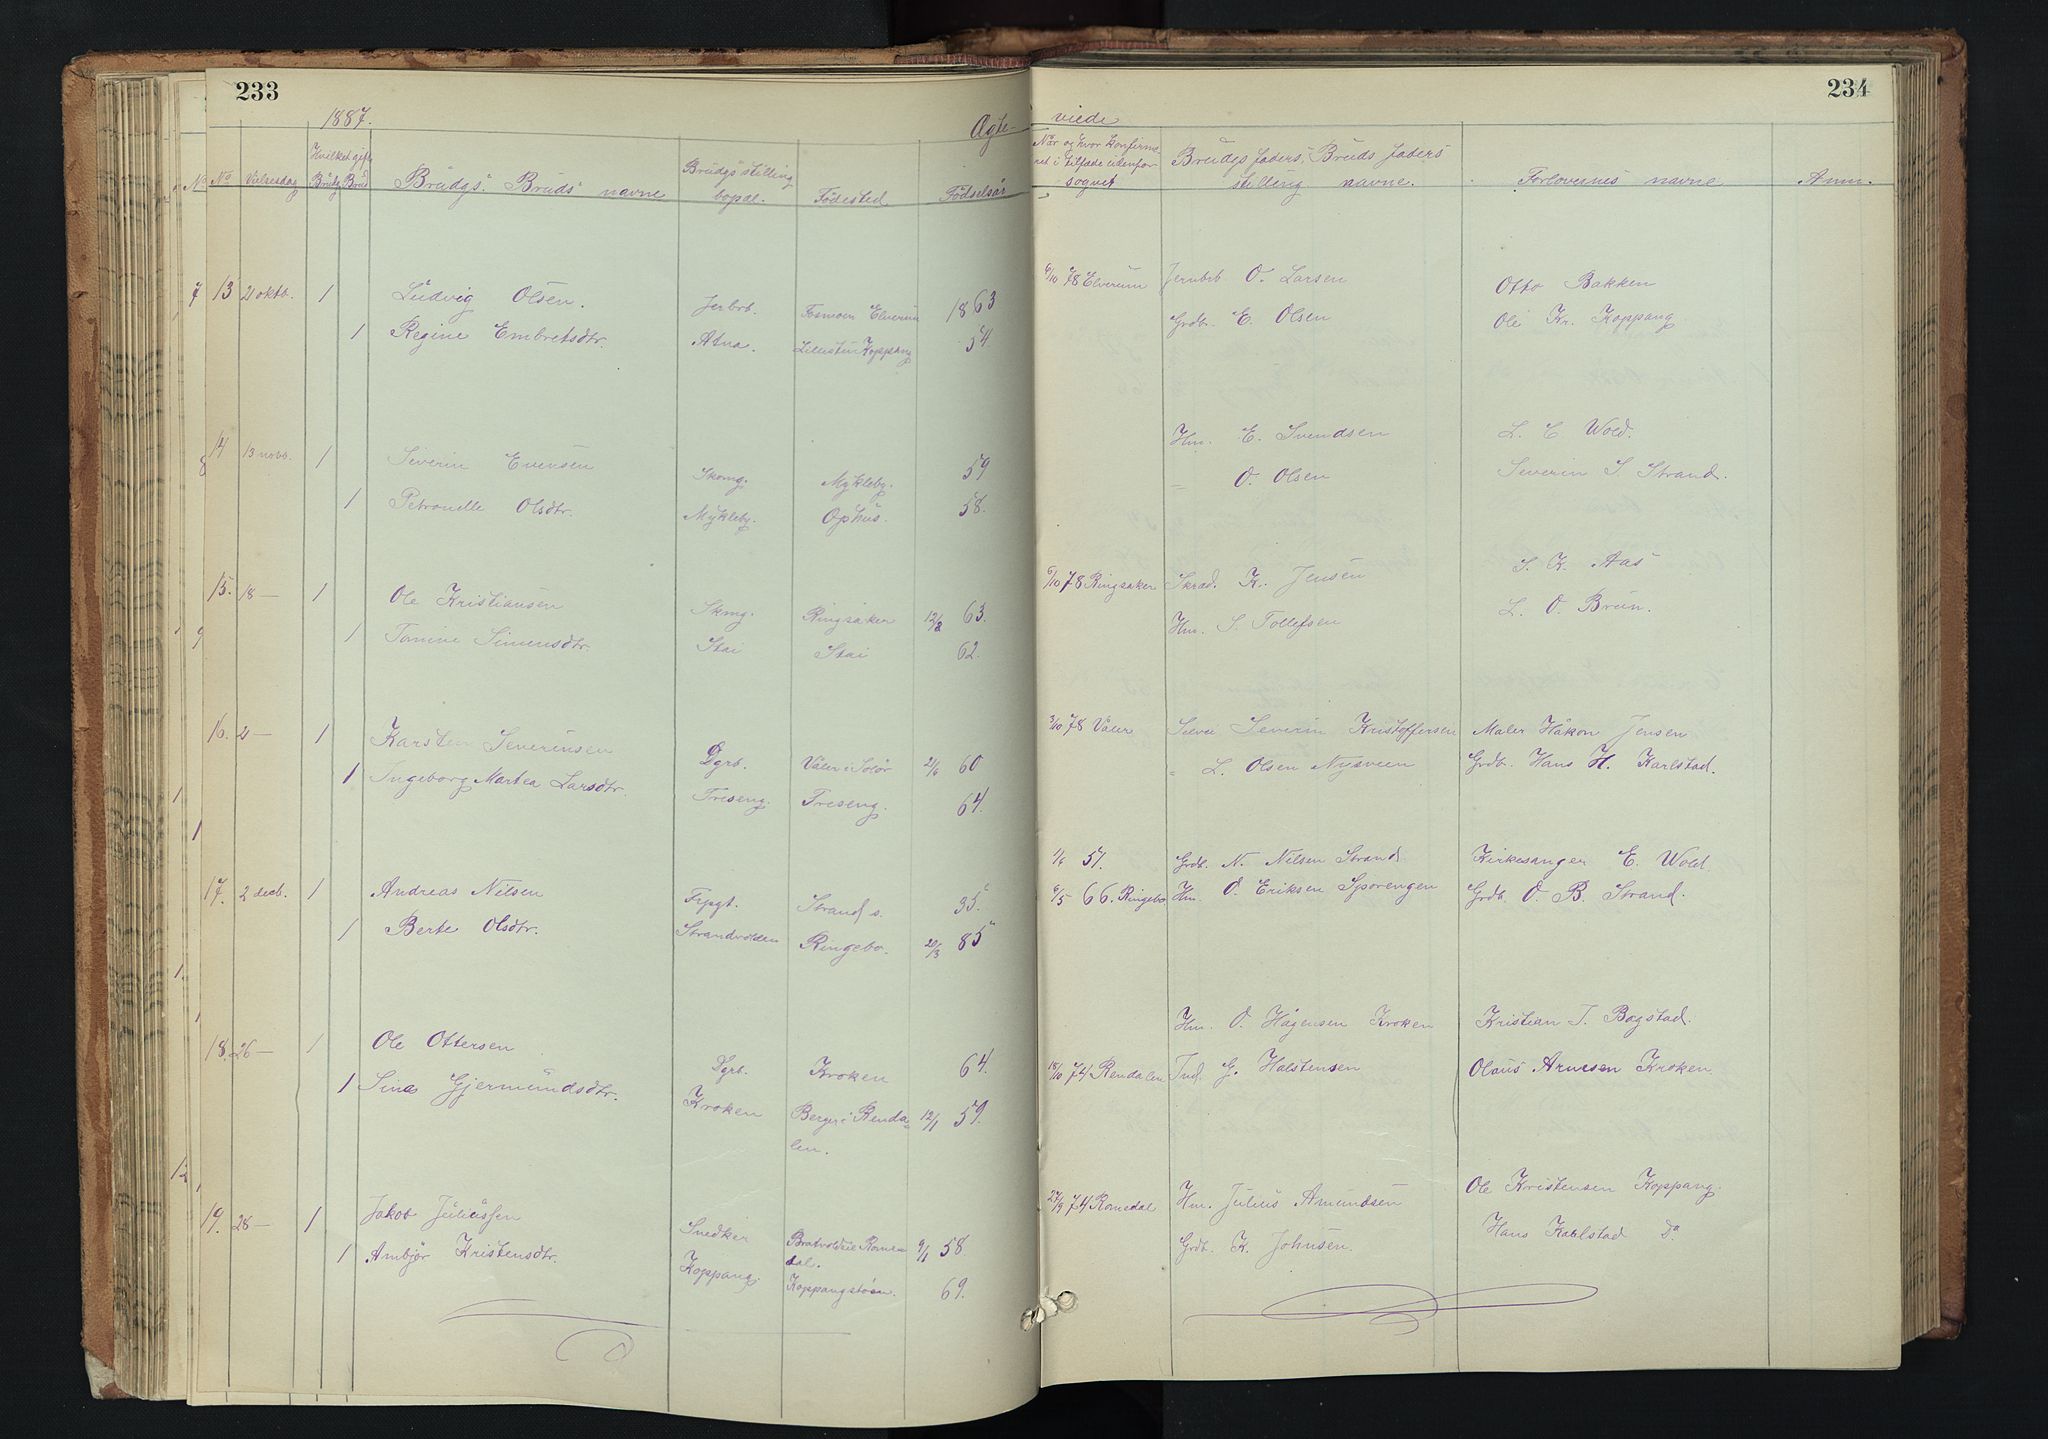 233
1887.
Ægte-
No
No
Vielsesdag
Hvilket gift
Brudg
Brud
Brudgs Bruds navne
Brudgs stilling
bopæl.
Fødested
Fødselsår
7 13 21 oktb. 1 Ludvig Olsen. Jerbrb. Elverum 1863
1 Regine Embretsdtr. Atna. Koppang 54
8 14 13 novb. 1 Severin Evensen Skomg. Mykleby. 59
1 Petronelle Olsdtr. Mykleby. Ophus. 58.
15. 18 — 1 Ole Kristiansen Skomg. Ringsaker 12/8 63.
9 1 Tomine Simensdtr. Stai Stai 62.
16. 21 — 1 Karsten Severinsen Dgrb. Våler i Solør 21/6 60
1 Ingeborg Martea Larsdtr. Treseng. Treseng. 64.
17. 2 decb. 1 Andreas Nilsen Frpgt. Strand s. 35
1 Berte Olsdtr. Strandvolden Ringebo. 20/3 85
18. 26 — 1 Ole Ottersen Dgrb. Kroken 64.
1 Sina Gjermundsdtr. Kroken Berger i Renda- 12/1 59.
len.
12
19. 28 — 1 Jakob Juliussen Snedker Romе- 9/1 58
1 Ambjør Kristensdtr. Koppang. dal.
Koppangstøen. 69.
234
viede
Når og hvor konfirme-
ret i tilfælde udenfor
sognet
Brudgs faders, Bruds faders
stilling navne.
Forlovernes navne
Anm.
6/10 78 Elverum Jernbrb O. Larsen Otto Bakken
Grdb. E. Olsen Ole Kr. Koppang
Hm. E. Svendsen L. E Wold.
" O. Olsen Severin S. Strand.
6/10 78 Ringsaker Skræd. K. Jensen S. K. Aas
Hm. S. Tollefsen L. O. Brun.
3/10 78 Våler Selvei Severin Kristoffersen Maler Håkon Jensen
" L. Olsen Nysveen Grdb. Hans H. Karlstad.
1/6 51. Grdb. N. Nilsen Strand Kirkesanger E. Wold.
6/5 66. Ringebo Hm. O. Eriksen Sporengen Grdb. O. B. Strand.
Hm. O. Hågensen Kroken Kristian T. Bagstad.
18/10 74 Rendalen Ind. G. Halstensen Olaus Arnesen Kroken
27/9 74 Romedal Hm. Julius Amundsen Ole Kristensen Koppang.
Grdb. K. Johnsen. Hans Karlstad Do